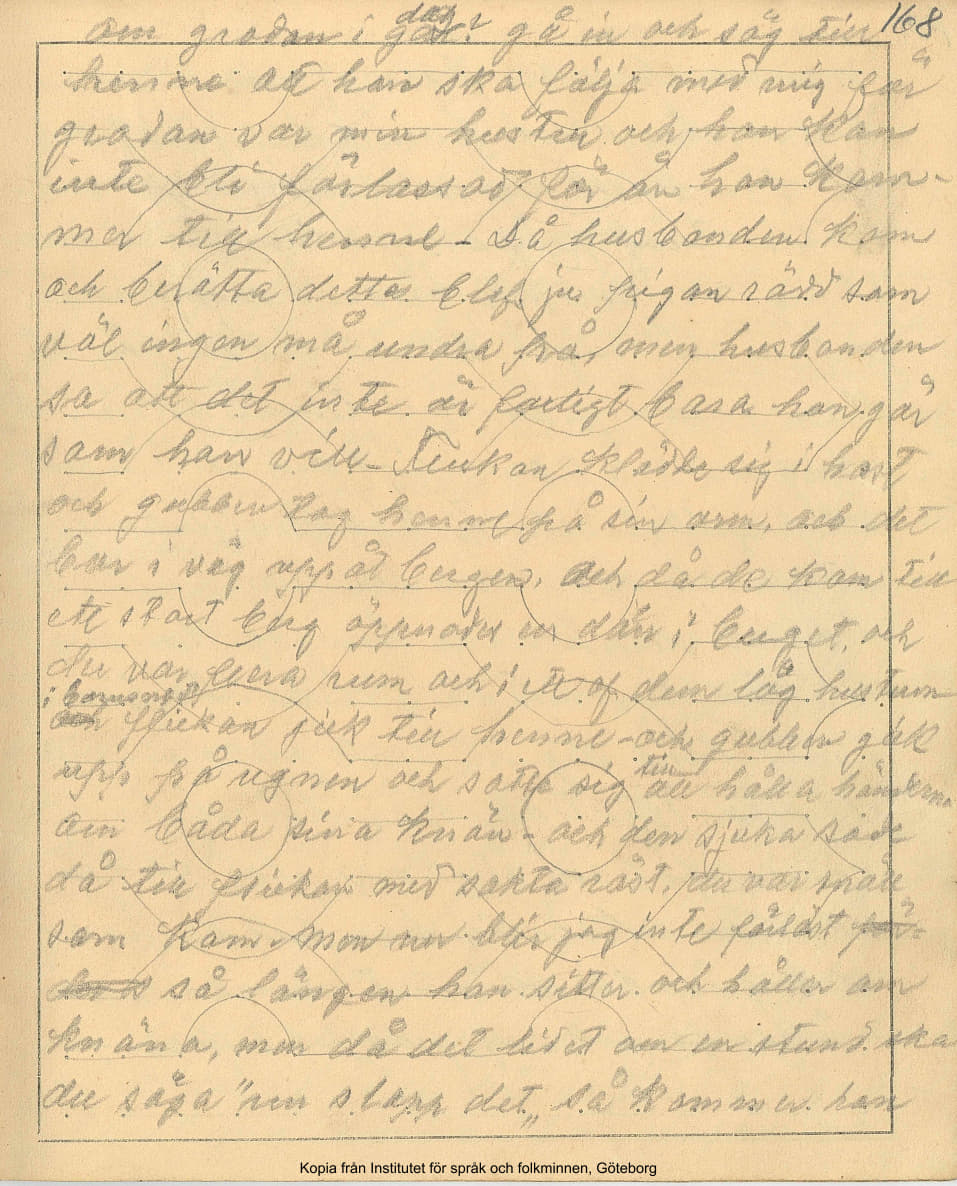 168
om grodan i går? gå in och säg till
henne att hon ska följa med mig för
grodan var min hustru och hon kan
inte bli förlassad för än hon kom-
mer till henne – Då husbonden kom
och berätta detta blef ju pigan rädd som
väl ingen må undra på, men husbonden
sa att det inte är farligt bara hon går
som han vill – Flickan klädde sig i hast
och gubben tog henne på sin arm, och det
bar i väg uppåt bergen, och då de kom till
ett stort berg öppnades en dörr i berget, och
der var flera rum och i ett af dem låg hustrun
i barnsnöd
flickan gick till henne – och gubben gick
upp på ugnen och satte sig till att hålla händerna
om båda sina knän – och den sjuka sade
då till flickan med sakta röst, du var snäll
som kom. Men nu blir jag inte förlöst
så längen han sitter och håller om
knäna, men då det lidet om en stund ska
du säga "nu slapp det„ så kommer han
Kopia från Institutet för språk och folkminnen, Göteborg